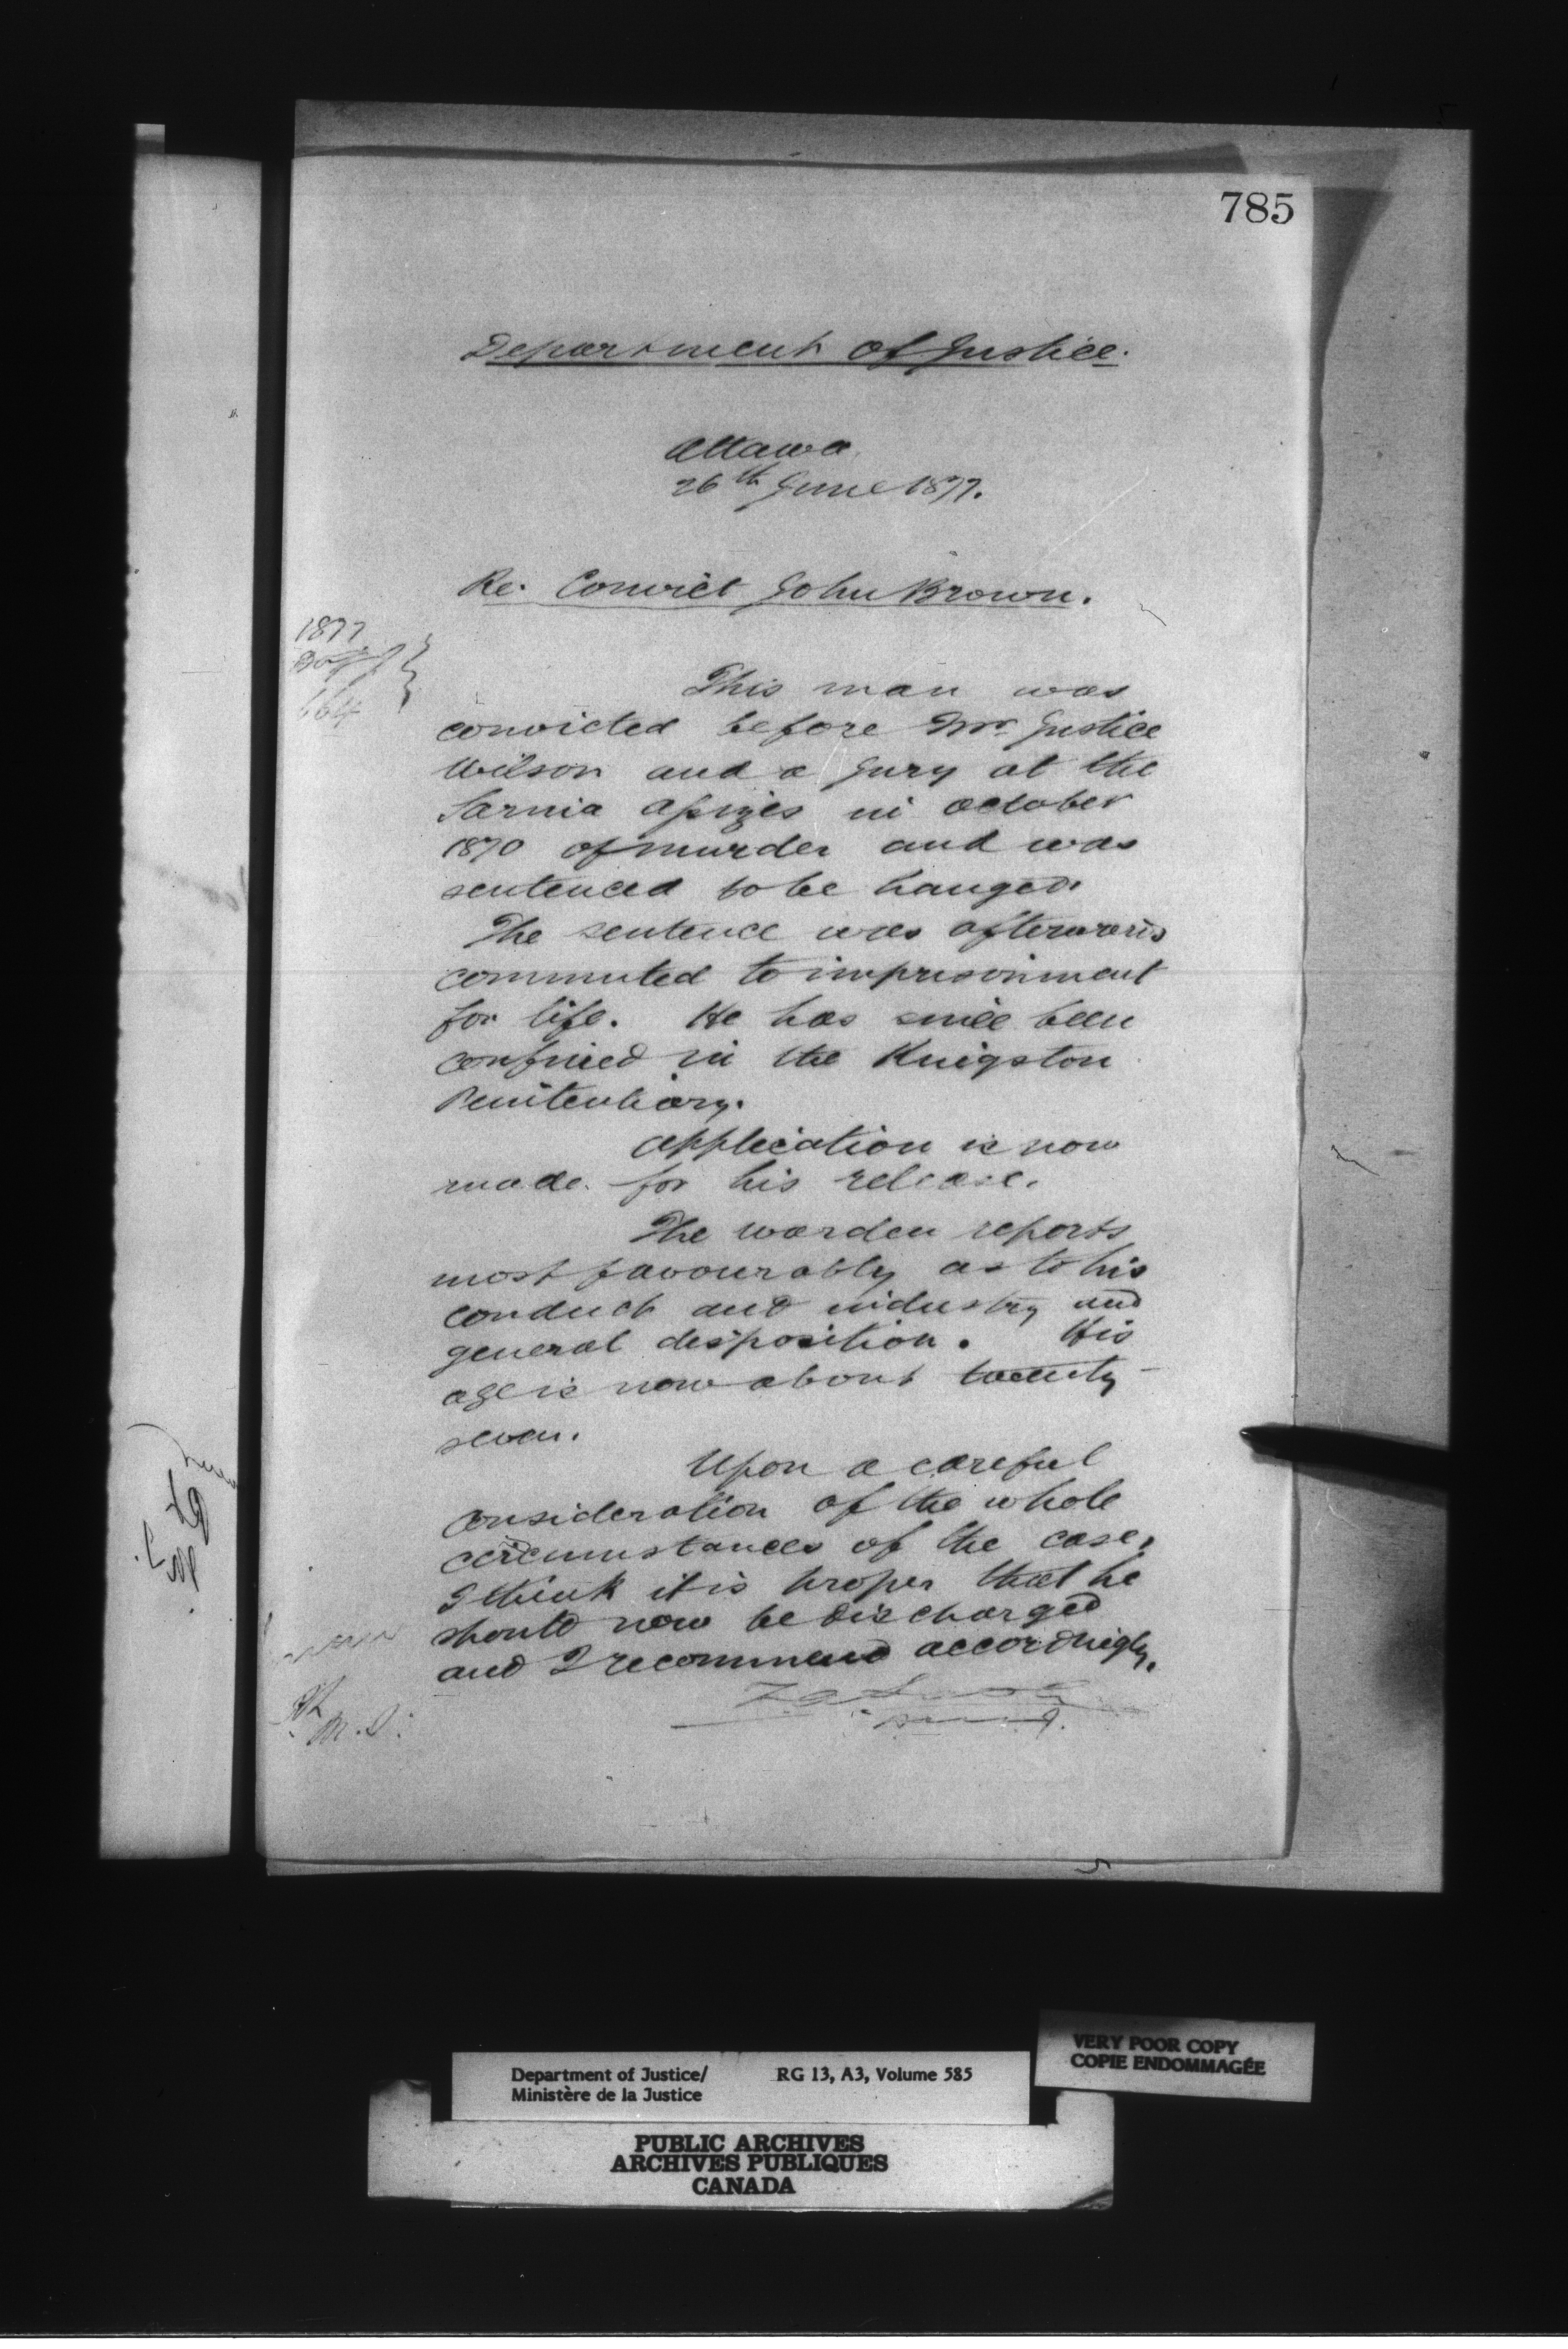 785
Department of Justice.
Ottawa
26th June 1877.
Re. Convict John Brown.
1877
664
This man was
convicted before Mr. Justice
Wilson and a Jury at the
Sarnia Assizes in October
1870 of murder and was
sentenced to be hanged.
The sentence was afterwards
commuted to imprisonment
for life. He has since been
confined in the Kingston
Penitentiary.
Application is now
made for his release.
The warden reports
most favourably as to his
conduct and industry and
general disposition. His
age is now about twenty-
seven.
Upon a careful
consideration of the whole
circumstances of the case,
I think it is proper that he
should now be discharged
and I recommend accordingly.
M. J.
Department of Justice/ RG 13, A3, Volume 585
Ministère de la Justice
VERY POOR COPY
COPIE ENDOMMAGÉE
PUBLIC ARCHIVES
ARCHIVES PUBLIQUES
CANADA